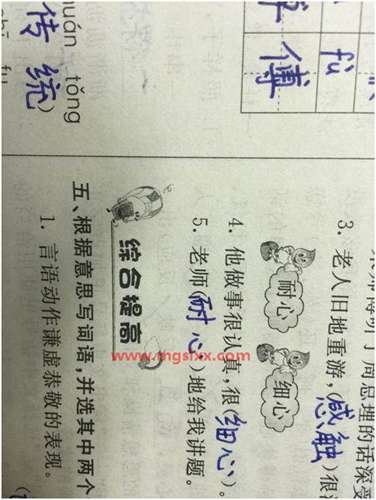 fù
傅
uán tǒng
传 统)
总理的话深受
3. 老人旧地重游,(感触)很
耐心 细心
4. 他做事很认真,很(细心)。
5. 老师(耐心)地给我讲题。
综合提高
五、根据意思写词语,并选其中两个
1. 言语动作谦虚恭敬的表现。(
www.mgsixx.com